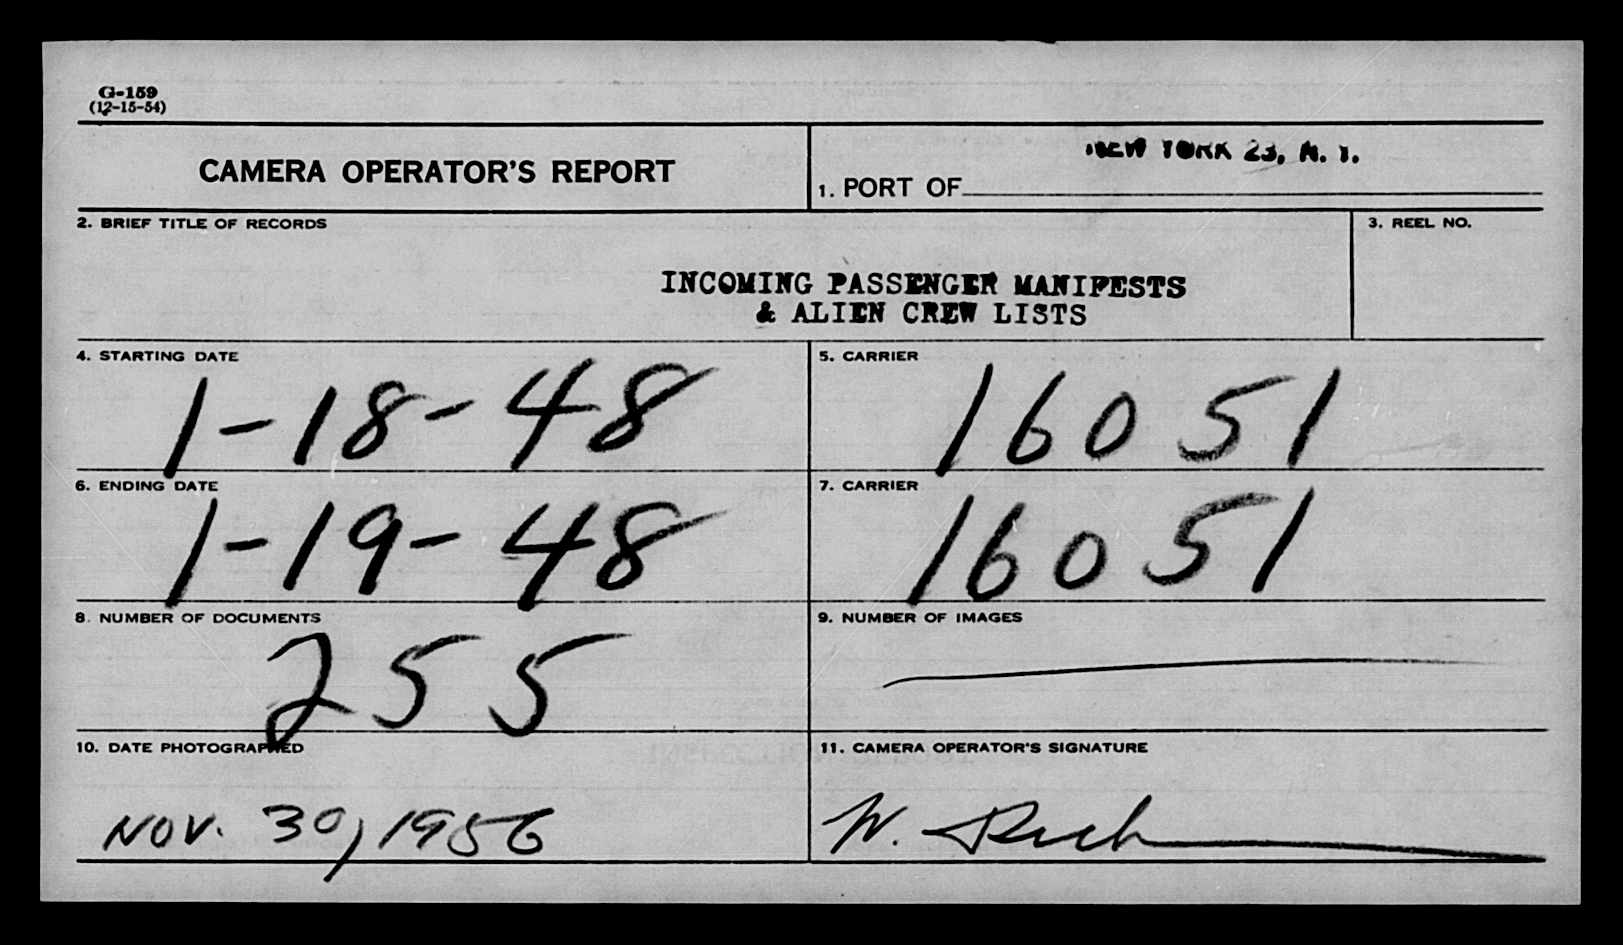 G-159
(12-15-54)
CAMERA OPERATOR'S REPORT
NEW YORK 23, N. Y.
1. PORT OF
2. BRIEF TITLE OF RECORDS
3. REEL NO.
INCOMING PASSENGER MANIFESTS
& ALIEN CREW LISTS
4. STARTING DATE
1-18-48
5. CARRIER
16051
6. ENDING DATE
1-19-48
7. CARRIER
16051
8. NUMBER OF DOCUMENTS
255
9. NUMBER OF IMAGES
10. DATE PHOTOGRAPHED
NOV. 30, 1956
11. CAMERA OPERATOR'S SIGNATURE
W.